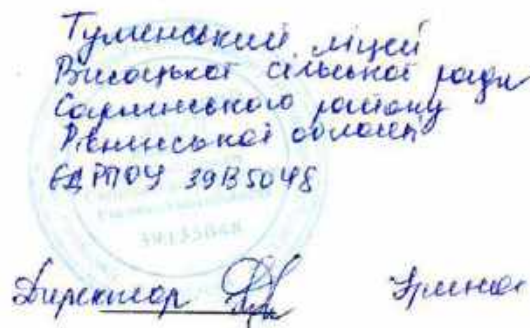 Туменський ліцей
Висоцької сільської ради
Сарненського району
Рівненської області
ЄДРПОУ 39135048
39135048
Директор